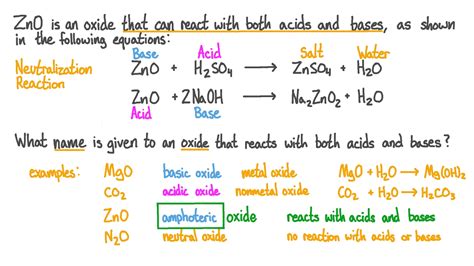 ZnO is an oxide that can react with both acids and bases, as shown
in the following equations:
Base Acid Salt Water
Neutralization Reaction ZnO + H₂SO₄ ⟶ ZnSO₄ + H₂O
ZnO + 2NaOH ⟶ Na₂ZnO₂ + H₂O
Acid Base
What name is given to an oxide that reacts with both acids and bases?
examples: MgO basic oxide metal oxide MgO + H₂O ⟶ Mg(OH)₂
CO₂ acidic oxide nonmetal oxide CO₂ + H₂O ⟶ H₂CO₃
ZnO amphoteric oxide reacts with acids and bases
N₂O neutral oxide no reaction with acids or bases